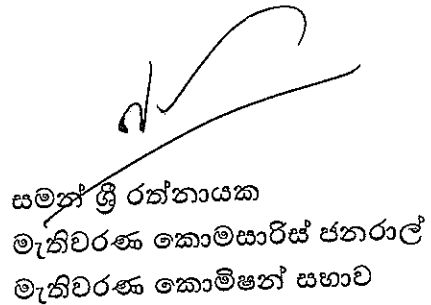 සමන් ශ්‍රී රත්නායක
මැතිවරණ කොමසාරිස් ජනරාල්
මැතිවරණ කොමිෂන් සභාව